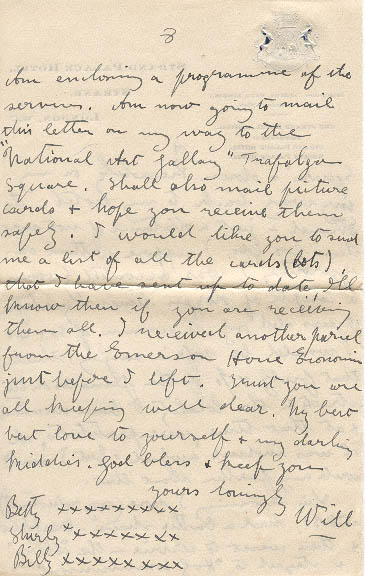 3
Am enclosing a programme of the
service. Am now going to mail
this letter on my way to the
"National Art Gallery" Trafalgar
Square. Shall also mail picture
cards & hope you receive them
safely. I would like you to send
me a list of all the cards (lots)
that I have sent up to date I'll
know then if you are receiving
them all. I received another parcel
from the Emerson Home Economics
just before I left. Trust you are
all keeping well dear. My best
best love to yourself & my darling
kiddies. God bless & keep you
yours lovingly
Will
Betty xxxxxxxxx
Shirly xxxxxxxx
Billy xxxxxxxxx